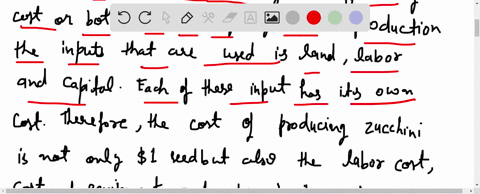 cost or production
the inputs that are used is land, labor
and capital. Each of these input has its own
cost. Therefore, the cost of producing zucchini
is not only $1 seed but also the labor cost,
cost